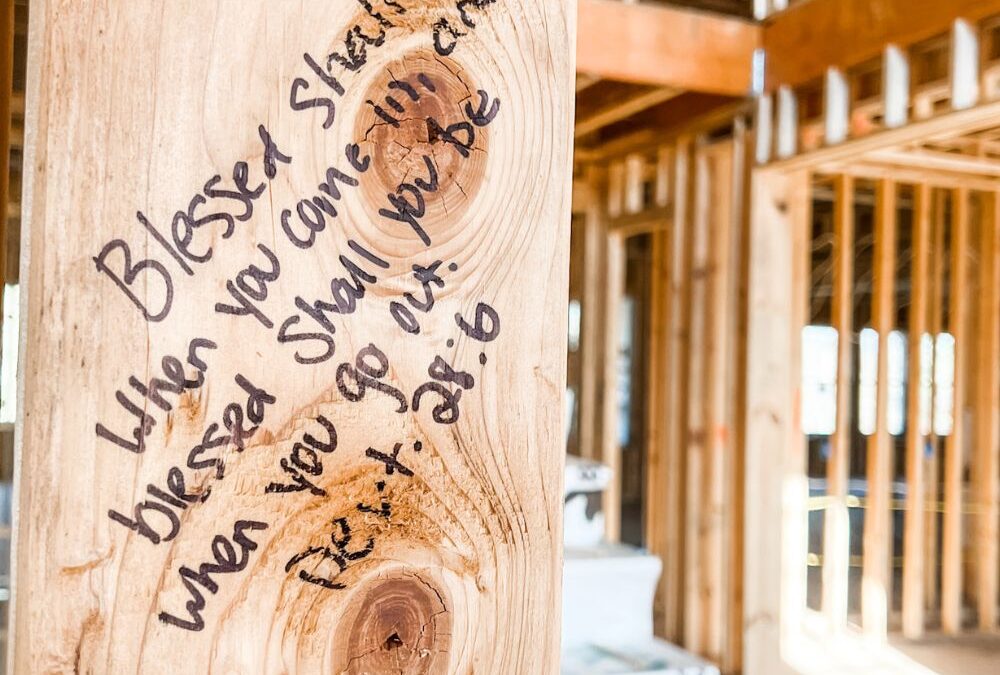 Blessed Shall
When you come in, and
blessed shall you be
when you go out.
Deut. 28:6